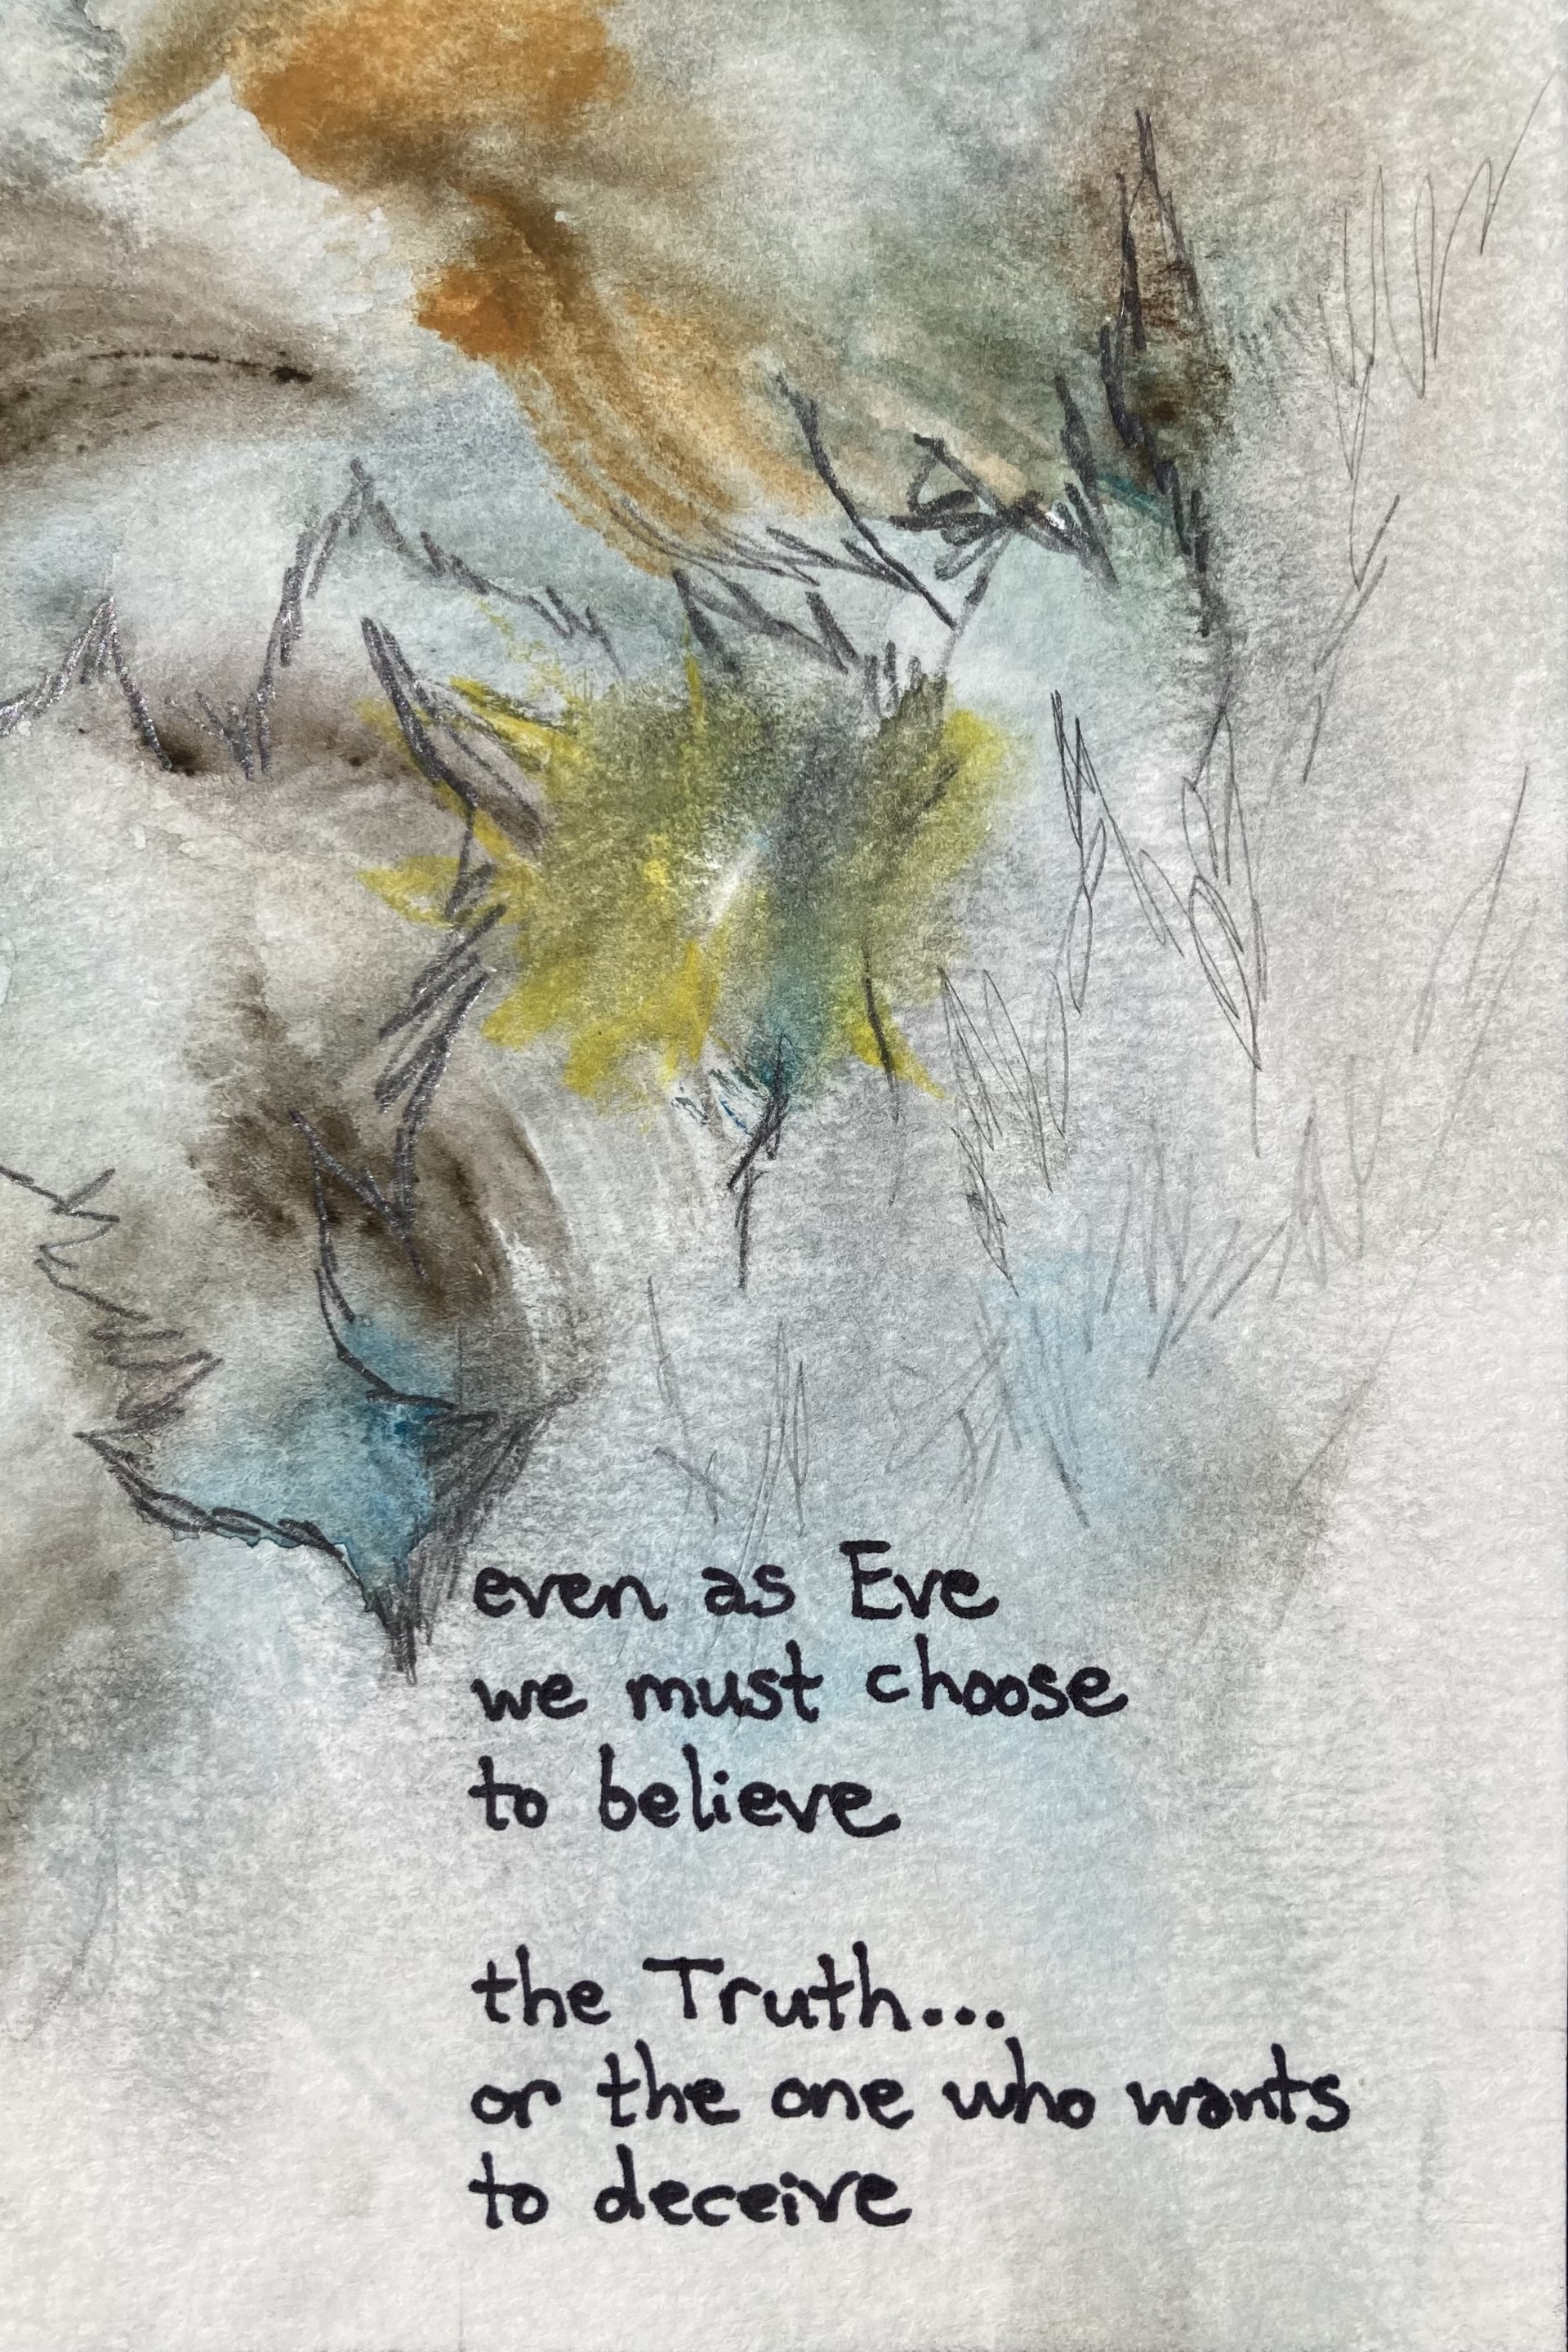 even as Eve
we must choose
to believe
the Truth...
or the one who wants
to deceive